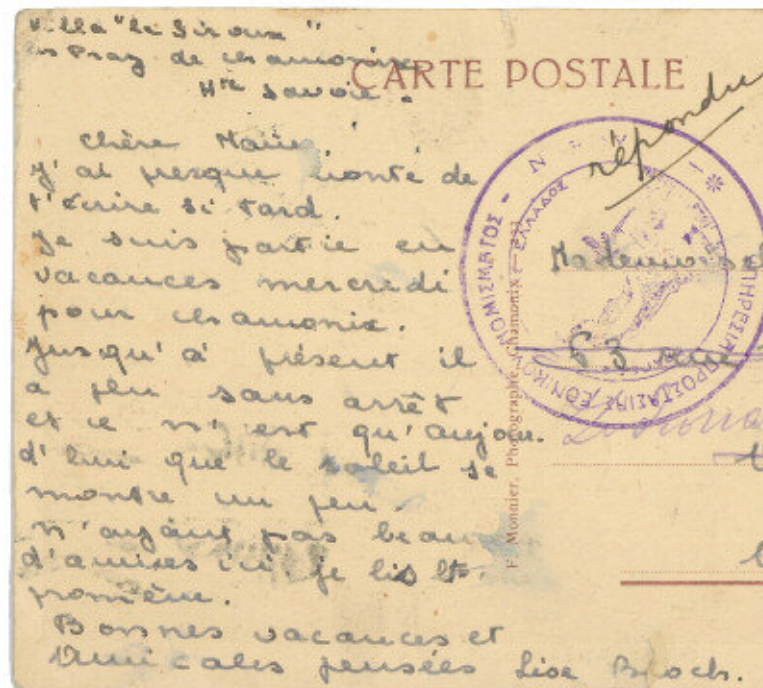 Villa "le Siroux"
les Praz de chamonix
Hte Savoie.
CARTE POSTALE
répondu
chère Marie,
J'ai presque honte de
t'écrire si tard.
Je suis partie en
vacances mercredi
pour chamonix.
Jusqu'à présent il
a plu sans arrêt
et ce n'est qu'aujou.
d'hui que le soleil se
montre un peu.
N'ayant pas beau
d'amies ici je lis et
promène.
Bonnes vacances et
Amicales pensées Lise Bloch.
F. Monnier, Photographe, Chamonix
ΥΠΗΡΕΣΙΑ ΠΡΟΣΤΑΣΙΑΣ ΕΘΝΙΚΟΥ ΝΟΜΙΣΜΑΤΟΣ
ΕΛΛΑΔΟΣ
Mademoisel
63 rue